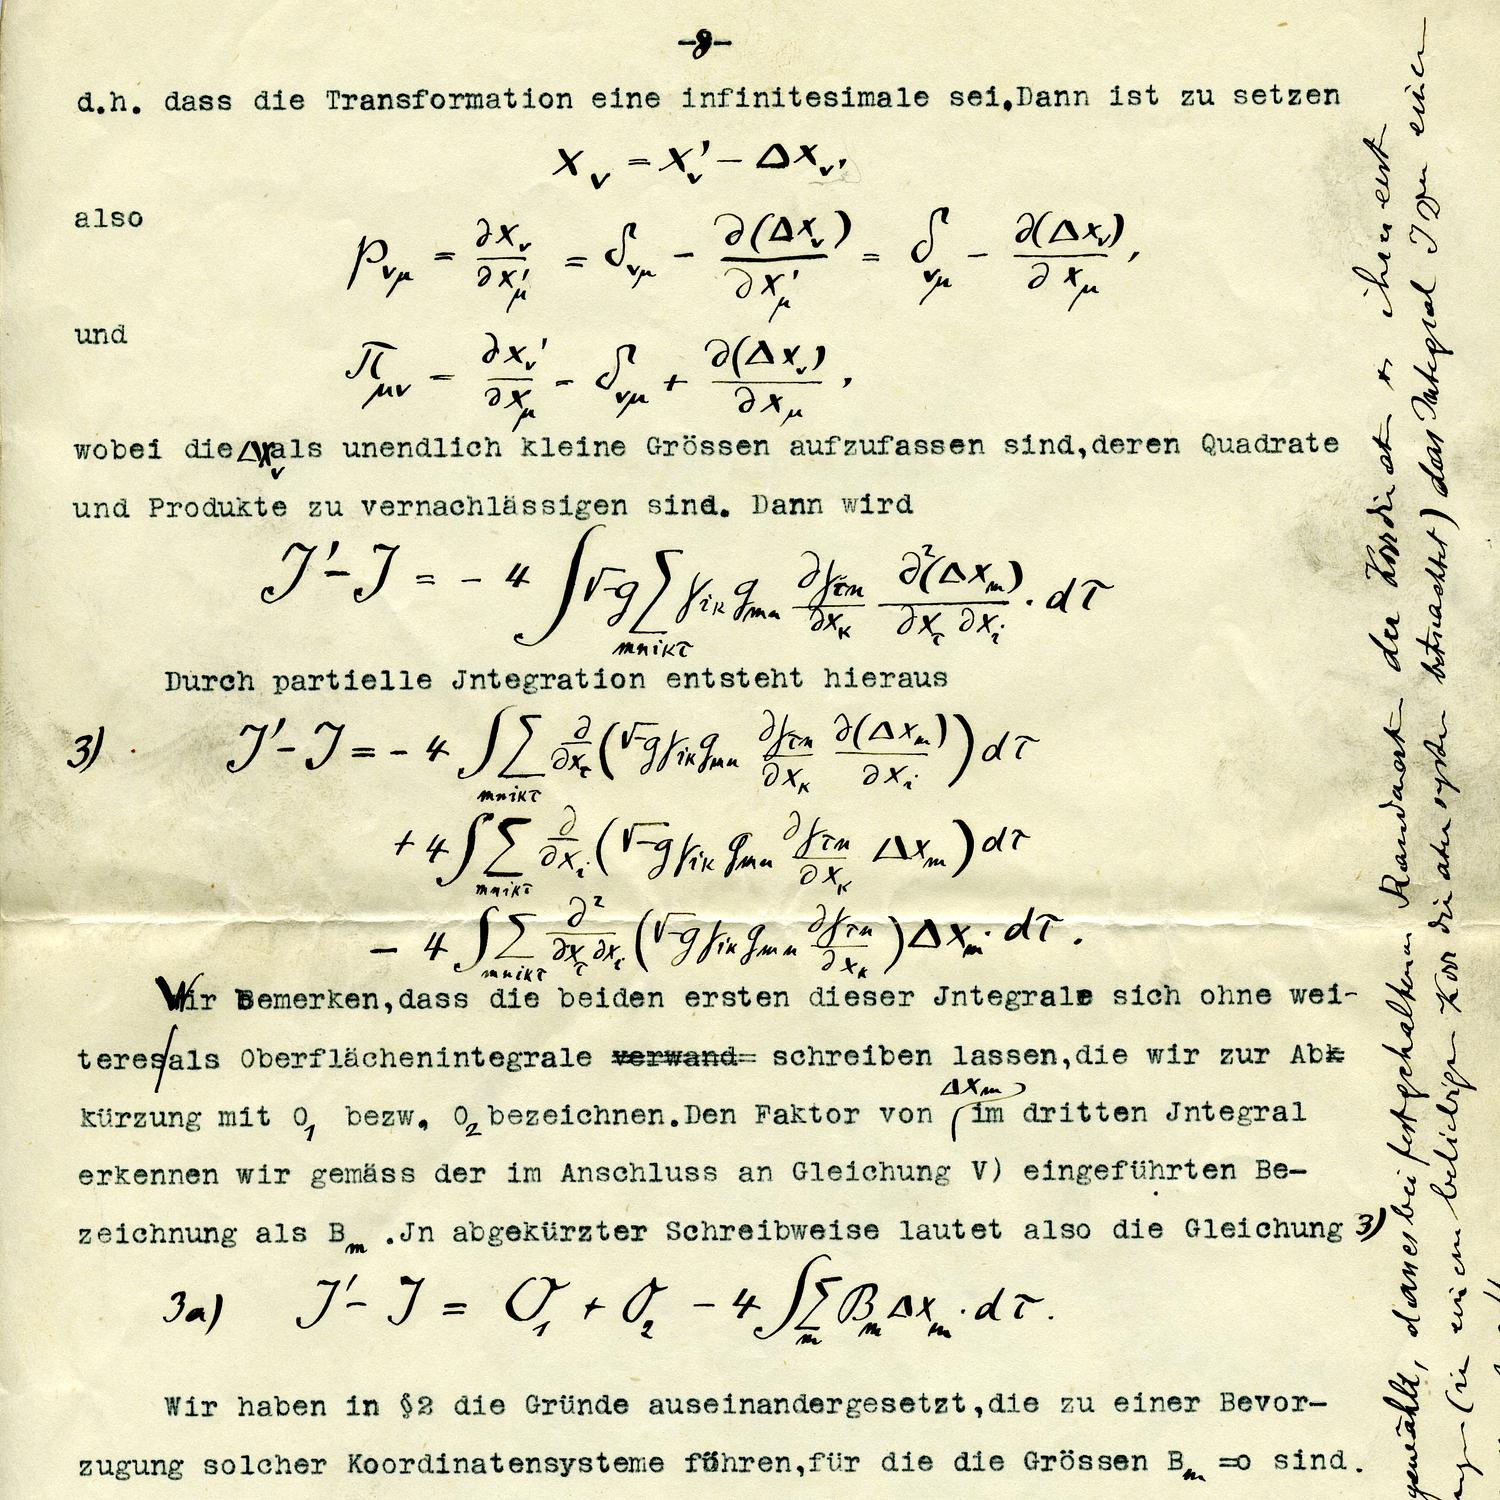 -8-
d.h. dass die Transformation eine infinitesimale sei.Dann ist zu setzen
x_ν = x'_ν − Δx_ν,
also
p_νμ = ∂x_ν/∂x'_μ = δ_νμ − ∂(Δx_ν)/∂x'_μ = δ_νμ − ∂(Δx_ν)/∂x_μ,
und
π_μν = ∂x'_ν/∂x_μ = δ_νμ + ∂(Δx_ν)/∂x_μ,
wobei die Δx_ν als unendlich kleine Grössen aufzufassen sind,deren Quadrate
und Produkte zu vernachlässigen sind. Dann wird
J' − J = − 4 ∫ √−g ∑_mnikτ γ_iκ g_mn ∂γ_τn/∂x_κ ∂²(Δx_m)/∂x_τ ∂x_i · dτ
Durch partielle Jntegration entsteht hieraus
3) J' − J = − 4 ∫ ∑_mnikτ ∂/∂x_τ (√−g γ_iκ g_mn ∂γ_τn/∂x_κ ∂(Δx_m)/∂x_i) dτ
+ 4 ∫ ∑_mnikτ ∂/∂x_i (√−g γ_iκ g_mn ∂γ_τn/∂x_κ Δx_m) dτ
− 4 ∫ ∑_mnikτ ∂²/∂x_τ ∂x_i (√−g γ_iκ g_mn ∂γ_τn/∂x_κ) Δx_m · dτ.
Wir Bemerken,dass die beiden ersten dieser Jntegrale sich ohne wei-
teres/als Oberflächenintegrale verwand= schreiben lassen,die wir zur Abk
kürzung mit O_1 bezw. O_2 bezeichnen.Den Faktor von Δx_m im dritten Jntegral
erkennen wir gemäss der im Anschluss an Gleichung V) eingeführten Be-
zeichnung als B_m .Jn abgekürzter Schreibweise lautet also die Gleichung 3)
3a) J' − J = O_1 + O_2 − 4 ∫ ∑_m B_m Δx_m · dτ.
Wir haben in §2 die Gründe auseinandergesetzt,die zu einer Bevor-
zugung solcher Koordinatensysteme führen,für die die Grössen B_m =o sind.
gewählt, dass bei festgehaltenen Randwert der Koordinat ihr erst
(in einem beliebigen Koor die aten system betrachtet) das Integral J von einer